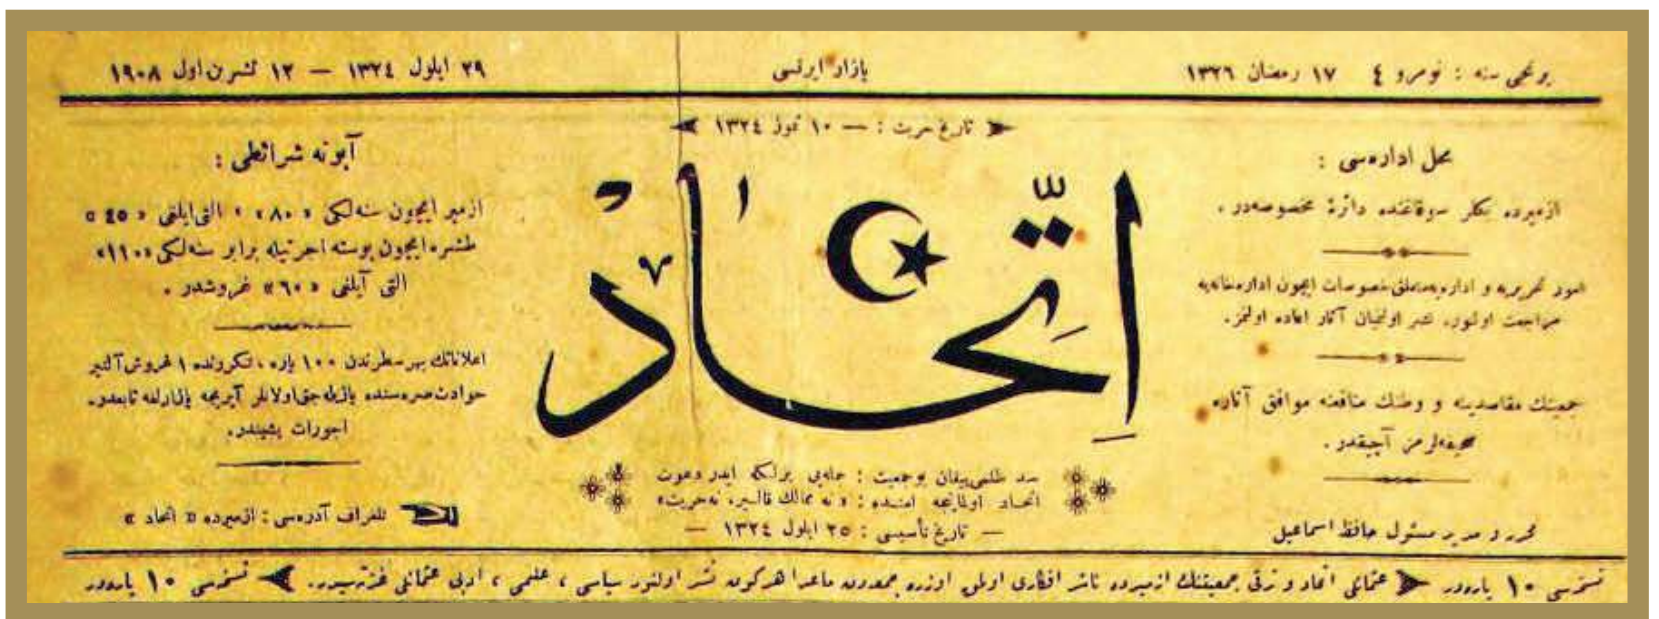 برنجی سنه : نومرو ٤ ١٧ رمضان ١٣٢٦
بازار ایرتسی
٢٩ ایلول ١٣٢٤ — ١٢ تشرین اول ١٩٠٨
تاریخ حریت : — ١٠ تموز ١٣٢٤
محل اداره‌سی :
ازمیرده بكلر سوقاغنده دائرهٔ مخصوصه‌در .
امور تحریریه و اداریه‌متعلق خصوصات ایچون اداره‌خانه‌یه
مراجعت اولنور. نشر اولنمیان آثار اعاده اولنمز.
جمعیتك مقاصدینه و وطنك منافعنه موافق آثاره
صحیفه‌لرمز آچیقدر .
محرر و مدیر مسئول حافظ اسماعیل
اتّحاد
سد ظلمی ییقان بوجمعیت : جمله‌یی برلكه ایدر دعوت
اتحاد اولمازسه امتده : « نه ممالك قالیر، نه حریت»
— تاریخ تأسیسی : ٢٥ ایلول ١٣٢٤ —
آبونه شرائطی :
ازمیر ایچون سنه‌لكی « ٨٠» ، التی‌ایلغی « ٤٥ »
طشره ایچون پوسته اجرتیله برابر سنه‌لكی «١١٠»
التی آیلغی « ٦٠» غروشدر .
اعلاناتك بهر سطرندن ١٠٠ پاره ، تكررنده ١ غروش آلنیر
حوادث صره‌سنده یازیله‌جق اولانلر آیریجه پازارلغه تابعدر.
اجورات پشیندر.
تلغراف آدره‌سی : ازمیرده « اتحاد »
نسخه‌سی ١٠ پاره‌در عثمانلی اتحاد و ترقی جمعیتنك ازمیرده ناشر افكاری اولمق اوزره جمعه‌دن ماعدا هركون نشر اولنور سیاسی ، علمی ، ادبی عثمانلی غزته‌سیدر. نسخه‌سی ١٠ پاره‌در